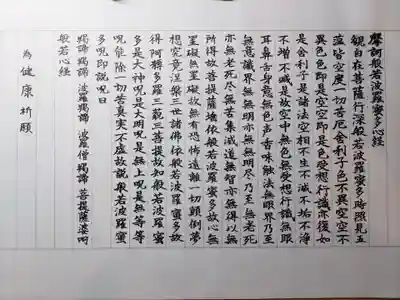 摩訶般若波羅蜜多心経
観自在菩薩行深般若波羅蜜多時照見五
蘊皆空度一切苦厄舎利子色不異空空不
異色色即是空空即是色受想行識亦復如
是舎利子是諸法空相不生不滅不垢不浄
不増不減是故空中無色無受想行識無眼
耳鼻舌身意無色声香味触法無眼界乃至
無意識界無無明亦無無明尽乃至無老死
亦無老死尽無苦集滅道無智亦無得以無
所得故菩提薩埵依般若波羅蜜多故心無
罣礙無罣礙故無有恐怖遠離一切顛倒夢
想究竟涅槃三世諸仏依般若波羅蜜多故
得阿耨多羅三藐三菩提故知般若波羅蜜
多是大神呪是大明呪是無上呪是無等等
呪能除一切苦真実不虚故説般若波羅蜜
多呪即説呪曰
羯諦 羯諦 波羅羯諦 波羅僧羯諦 菩提薩婆訶
般若心経
為健康祈願